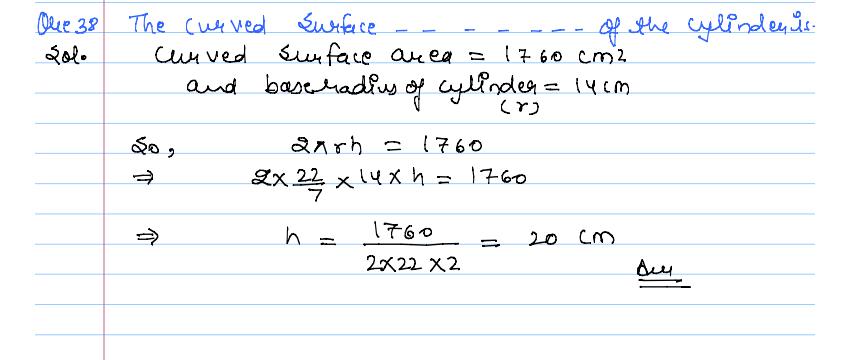 Que 38 The curved surface - - - - - - - of the cylinder is.
Sol. Curved surface area = 1760 cm2
and base radius of cylinder = 14 cm
(r)
So, 2πrh = 1760
⇒ 2 × 22/7 × 14 × h = 1760
⇒ h = 1760 / 2×22×2 = 20 cm
Ans